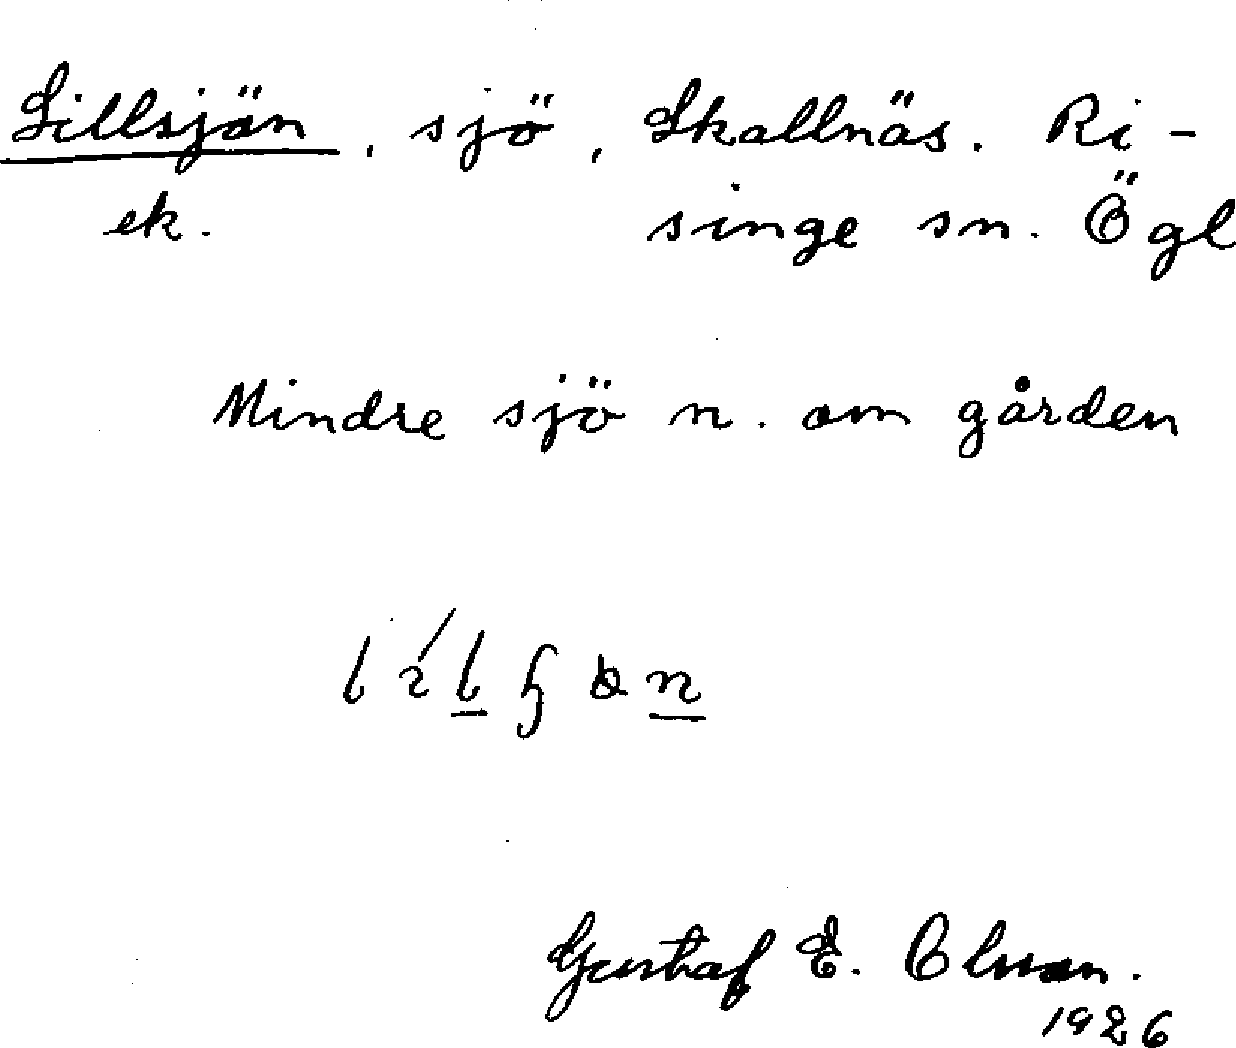 Lillsjön, sjö, Skallnäs. Ri-
ek. singe sn. Ögl
Mindre sjö n. om gården
Gustaf E. Olsson.
1926